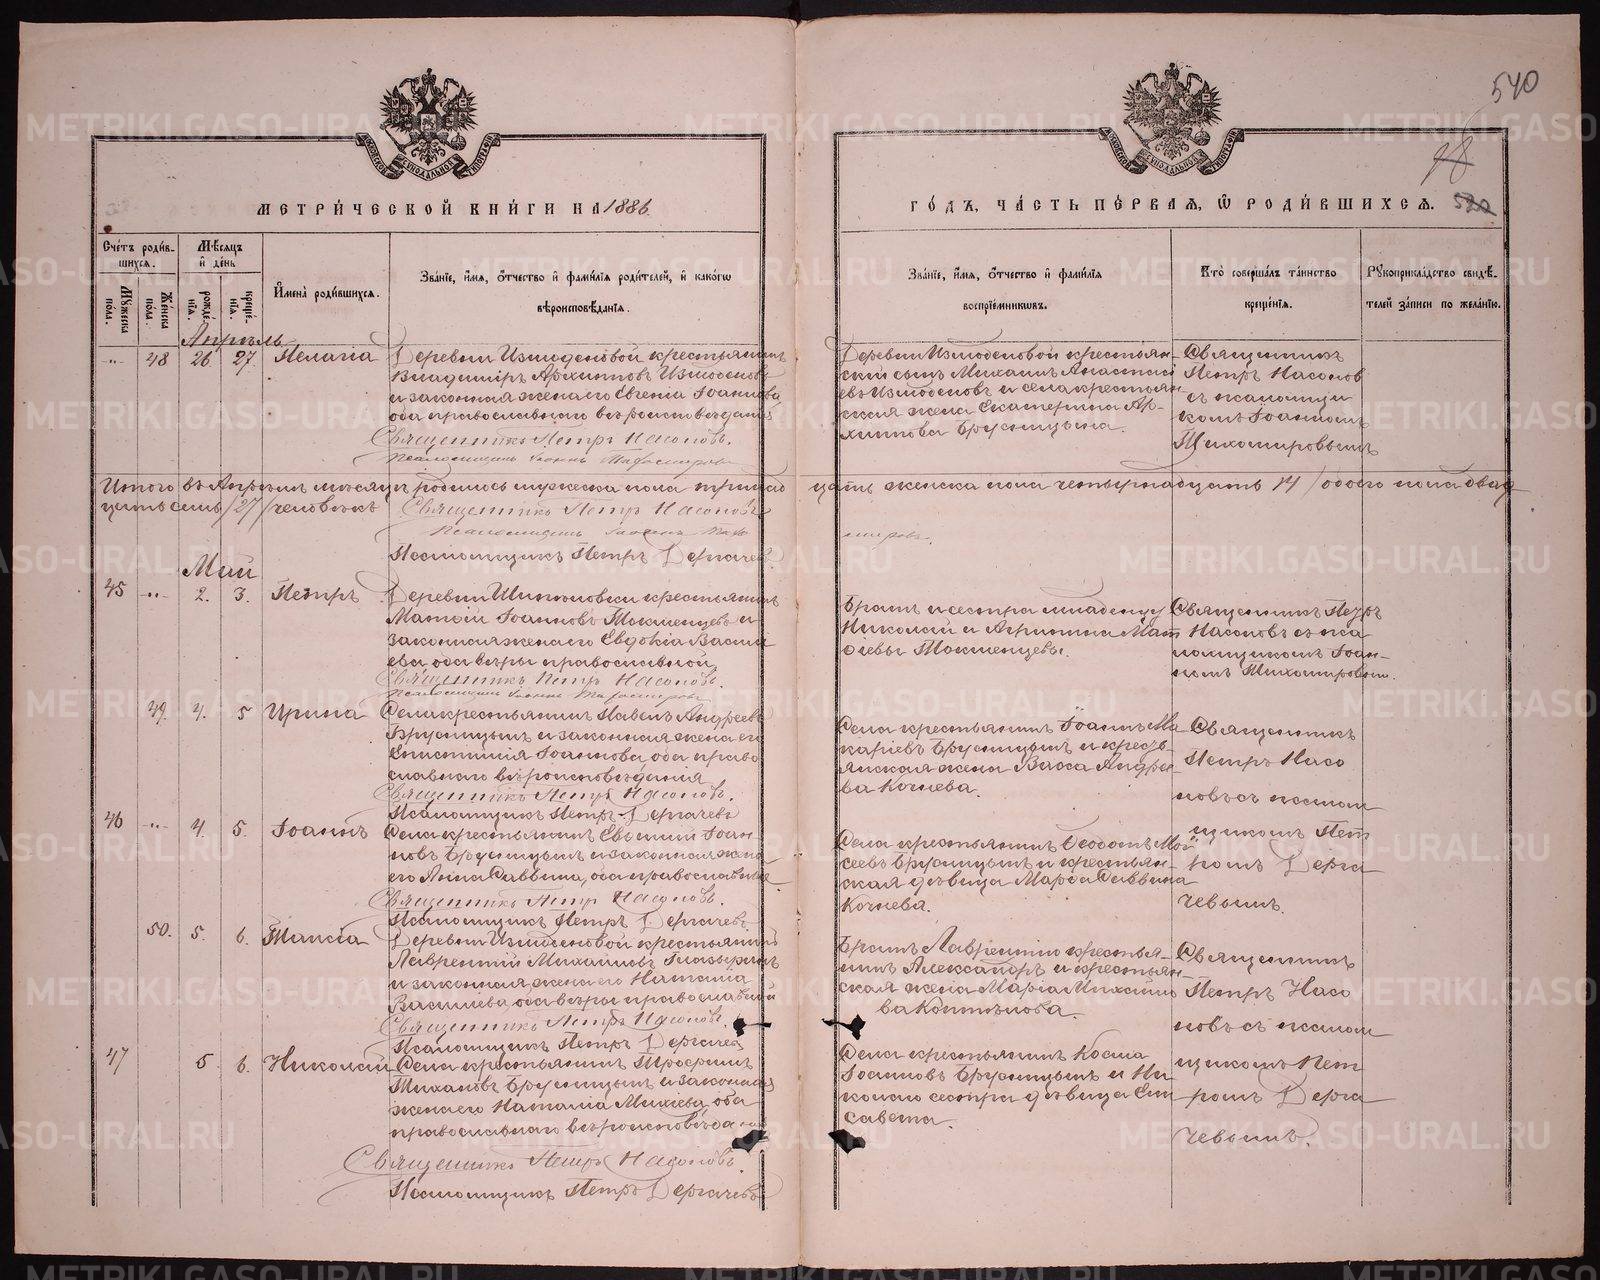 540
98
520
МЕТРИ́ЧЕСКОЙ КНИ́ГИ НА 1886
ГО́ДЪ, ЧА́СТЬ ПЕ́РВАЯ, Ѡ РОДИ́ВШИХСЯ.
Сче́тъ роди́в-
шихся.
Мѣсяцъ
и де́нь
Имена̀ роди́вшихся.
Зва́нїе, и́мя, о́тчество и фами́лїя роди́телей, и како́гѡ
вѣроисповѣ́данїя.
Зва́нїе, и́мя, о́тчество и фами́лїя
воспрїе́мниковъ.
Кто̀ соверша́лъ та́инство
креще́нїя.
Рукоприкла́дство свидѣ́-
телей за́писи по жела́нїю.
Му́жеска
пола.
Же́нска
пола.
рожде́-
нїя.
креще́-
нїя.
Апрѣль
48 26 27. Пелагія
Деревни Измоденовой крестьянинъ
Владиміръ Архиповъ Измоденовъ
и законная жена его Евгенія Іоаннова,
оба православнаго вѣроисповѣданія
Священникъ Петръ Насоновъ.
Деревни Измоденовой крестьян-
скій сынъ Михаилъ Анастасі
евъ Измоденовъ и села крестьян
ская жена Екатерина Ар-
хипова Брусницына.
Священникъ
Петръ Насонов
съ псаломщи
комъ Іоанномъ
Тихомировымъ
Итого въ Апрѣлѣ мѣсяцѣ родилось мужеска пола тринад
цать женска пола четырнадцать 14 / обоего пола двад
цать семь /27/ человѣкъ
Священникъ Петръ Насоновъ
Псаломщикъ Іоаннъ Тихо
мировъ.
Псаломщикъ Петръ Дергачев
Май
45 2. 3. Петръ
Деревни Шипиловки крестьянинъ
Матѳій Іоанновъ Токменцевъ и
законная жена его Евдокія Василі
ева, оба вѣры православной.
Священникъ Петръ Насоновъ.
Братъ и сестра младенцу
Николай и Агрипина Мат
ѳіевы Токменцевы.
Священникъ Петръ
Насоновъ съ пса
ломщикомъ Іоан-
номъ Тихомировым.
49. 4. 5 Ирина
Села крестьянинъ Павелъ Андреевъ
Брусницынъ и законная жена его
Епистимія Іоаннова, оба право
славнаго вѣроисповѣданія
Священникъ Петръ Насоновъ.
Псаломщикъ Петръ Дергачевъ
Села крестьянинъ Іоаннъ Ма
каріевъ Брусницынъ и кресть
янская жена Васса Андре
ева Кочнева.
Священникъ
Петръ Насо
новъ съ псалом
щикомъ Пет
ромъ Дерга
чевымъ.
46 4. 5. Іоаннъ
Села крестьянинъ Евѳимій Іоан-
новъ Брусницынъ и законная жена
его Анна Саввина, оба православные
Священникъ Петръ Насоновъ.
Псаломщикъ Петръ Дергачевъ.
Села крестьянинъ Ѳеодотъ Мои
сеевъ Брусницынъ и крестьян-
ская дѣвица Марѳа Саввина
Кочнева.
50. 5. 6. Таисія
Деревни Измоденовой крестьянинъ
Лаврентій Михайловъ Глазыринъ
и законная жена его Наталія
Василіева, оба вѣры православной
Священникъ Петръ Насоновъ.
Псаломщикъ Петръ Дергачев
Братъ Лаврентію крестья-
нинъ Александръ и крестьян-
ская жена Марія Михайло
ва Коптякова.
Священникъ
Петръ Насо
новъ съ псалом
щикомъ Пет
ромъ Дерга
чевымъ.
47 5 6. Николай
Села крестьянинъ Трофимъ
Тихановъ Брусницынъ и законная
жена его Наталія Михіева, оба
православнаго вѣроисповѣдан
Священникъ Петръ Насоновъ.
Псаломщикъ Петръ Дергачевъ
Села крестьянинъ Косма
Іоанновъ Брусницынъ и Ни
колаю сестра дѣвица Ели
савета.